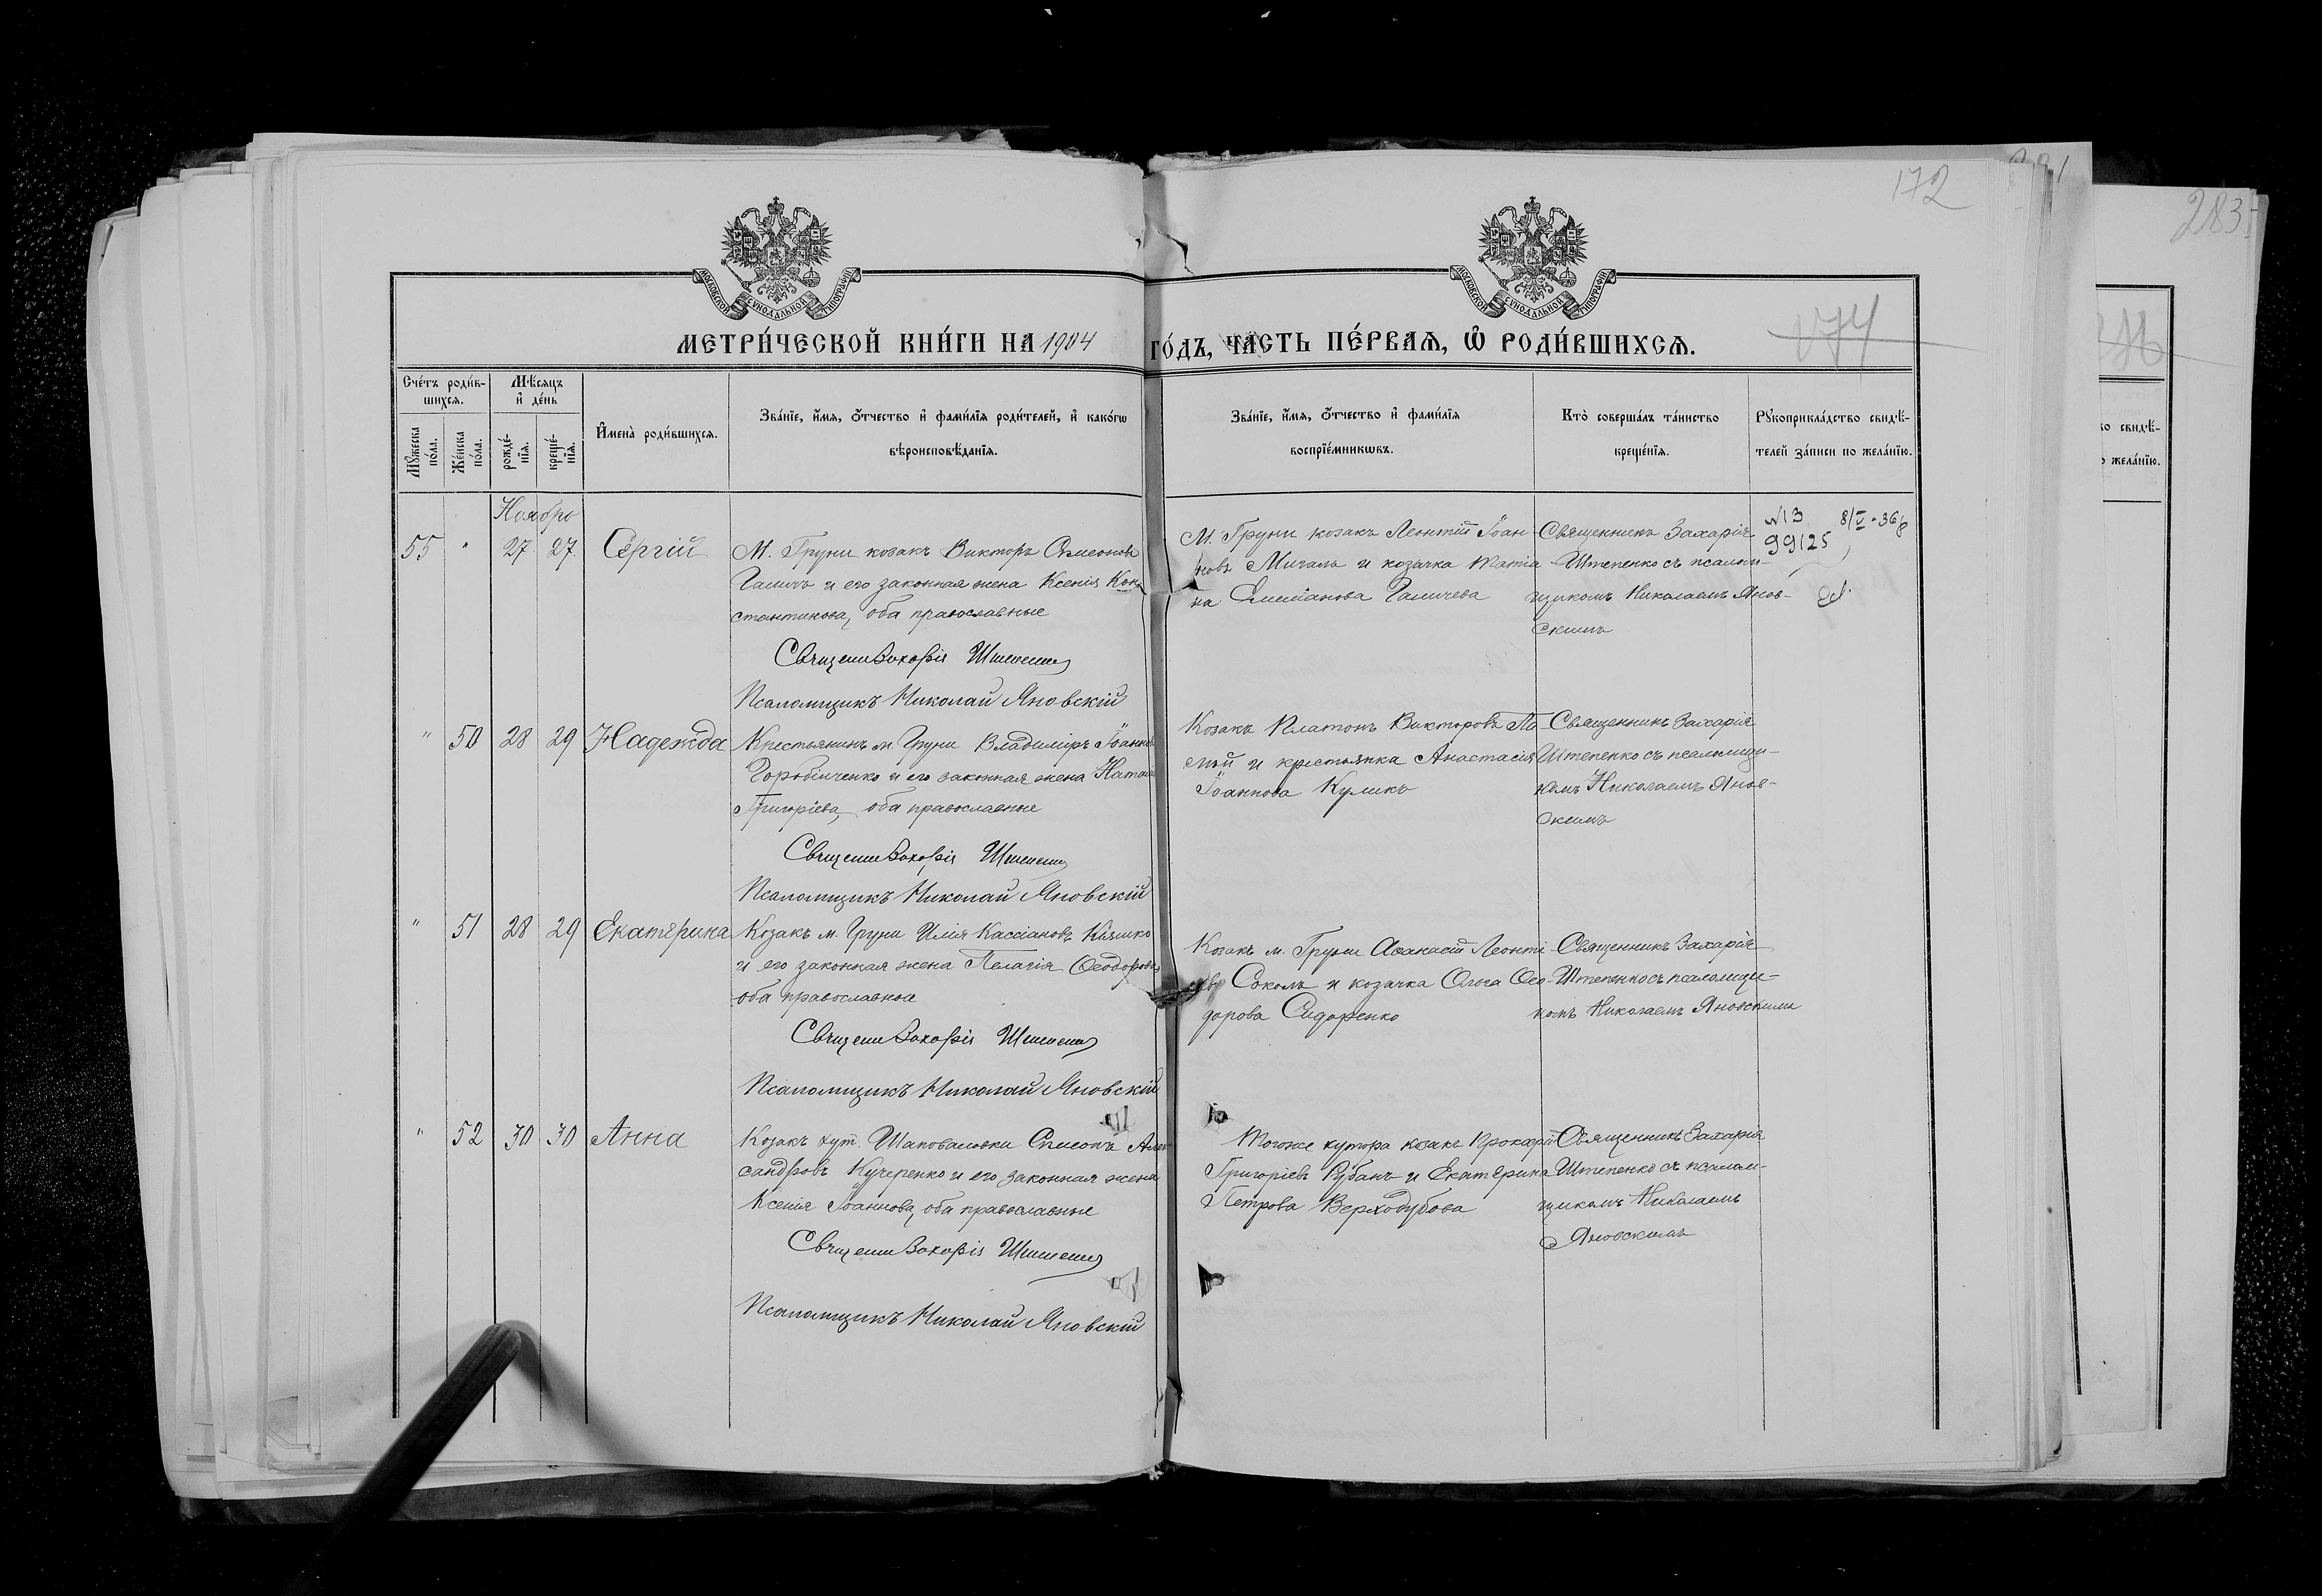 172
283
МОСКОВСКОЙ СѴНОДАЛЬНОЙ ТИПОГРАФІИ
МОСКОВСКОЙ СѴНОДАЛЬНОЙ ТИПОГРАФІИ
МЕТРИ́ЧЕСКОЙ КНИ́ГИ НА 1904 ГО́ДЪ, ЧА́СТЬ ПЕ́РВАѦ, Ѡ҆ РОДИ́ВШИХСѦ.
174
Сче́тъ роди́в-
шихсѧ.
Мꙋ́жеска
по́ла.
Же́нска
по́ла.
Мѣ́сѧцъ
и҆ де́нь
рожде́-
нїѧ.
креще́-
нїѧ.
И҆мена̀ роди́вшихсѧ.
Зва́нїе, и҆́мѧ, ѻ҆́тчество и҆ фами́лїѧ роди́телей, и҆ како́гѡ
вѣроисповѣ́данїѧ.
Зва́нїе, и҆́мѧ, ѻ҆́тчество и҆ фами́лїѧ
воспрїе́мникѡвъ.
Кто̀ соверша́лъ та́инство
креще́нїѧ.
Рꙋкоприкла́дство свидѣ́-
телей за́писи по жела́нїю.
Ноябрь
55 " 27 27 Сергій
М. Груни козакъ Викторъ Симеоновъ
Галичъ и его законная жена Ксенія Кон-
стантинова, оба православные
Священ Захарія Штепенко
Псаломщикъ Николай Яновскій
М. Груни козакъ Леонтій Іоан-
новъ Мигаль и козачка Матро-
на Емеліанова Галичева
Священникъ Захарія
Штепенко съ псалом-
щикомъ Николаемъ Янов-
скимъ
№13 8/V-36
99125
" 50 28 29 Надежда
Крестьянинъ м. Груни Владиміръ Іоанновъ
Горобінченко и его законная жена
Григоріева, оба православные
Священ Захарія Штепенко
Псаломщикъ Николай Яновскій
Козакъ Платонъ Викторовъ
и крестьянка Анастасія
Іоаннова Куликъ
Священникъ Захарія
Штепенко съ псаломщи-
комъ Николаемъ Янов-
скимъ
" 51 28 29 Екатерина
Козакъ м. Груни Илія Кассіановъ Кияшко
и его законная жена Пелагія Ѳеодорова,
оба православные
Священ Захарія Штепенко
Псаломщикъ Николай Яновскій
Козакъ м. Груни Аѳанасій Леонті-
евъ Соколъ и козачка Ольга Ѳео-
дорова Сидоренко
Священникъ Захарія
Штепенко съ псаломщи-
комъ Николаемъ Яновскимъ
" 52 30 30 Анна
Козакъ хут. Шаповаловки Симеонъ Алек-
сандровъ Кучеренко и его законная жена
Ксенія Іоаннова, оба православные
Священ Захарія Штепенко
Псаломщикъ Николай Яновскій
Тогоже хутора козакъ
Григоріевъ Рубанъ и Екатерина
Петрова Верходубова
Священникъ Захарія
Штепенко съ псалом-
щикомъ Николаемъ
Яновскимъ